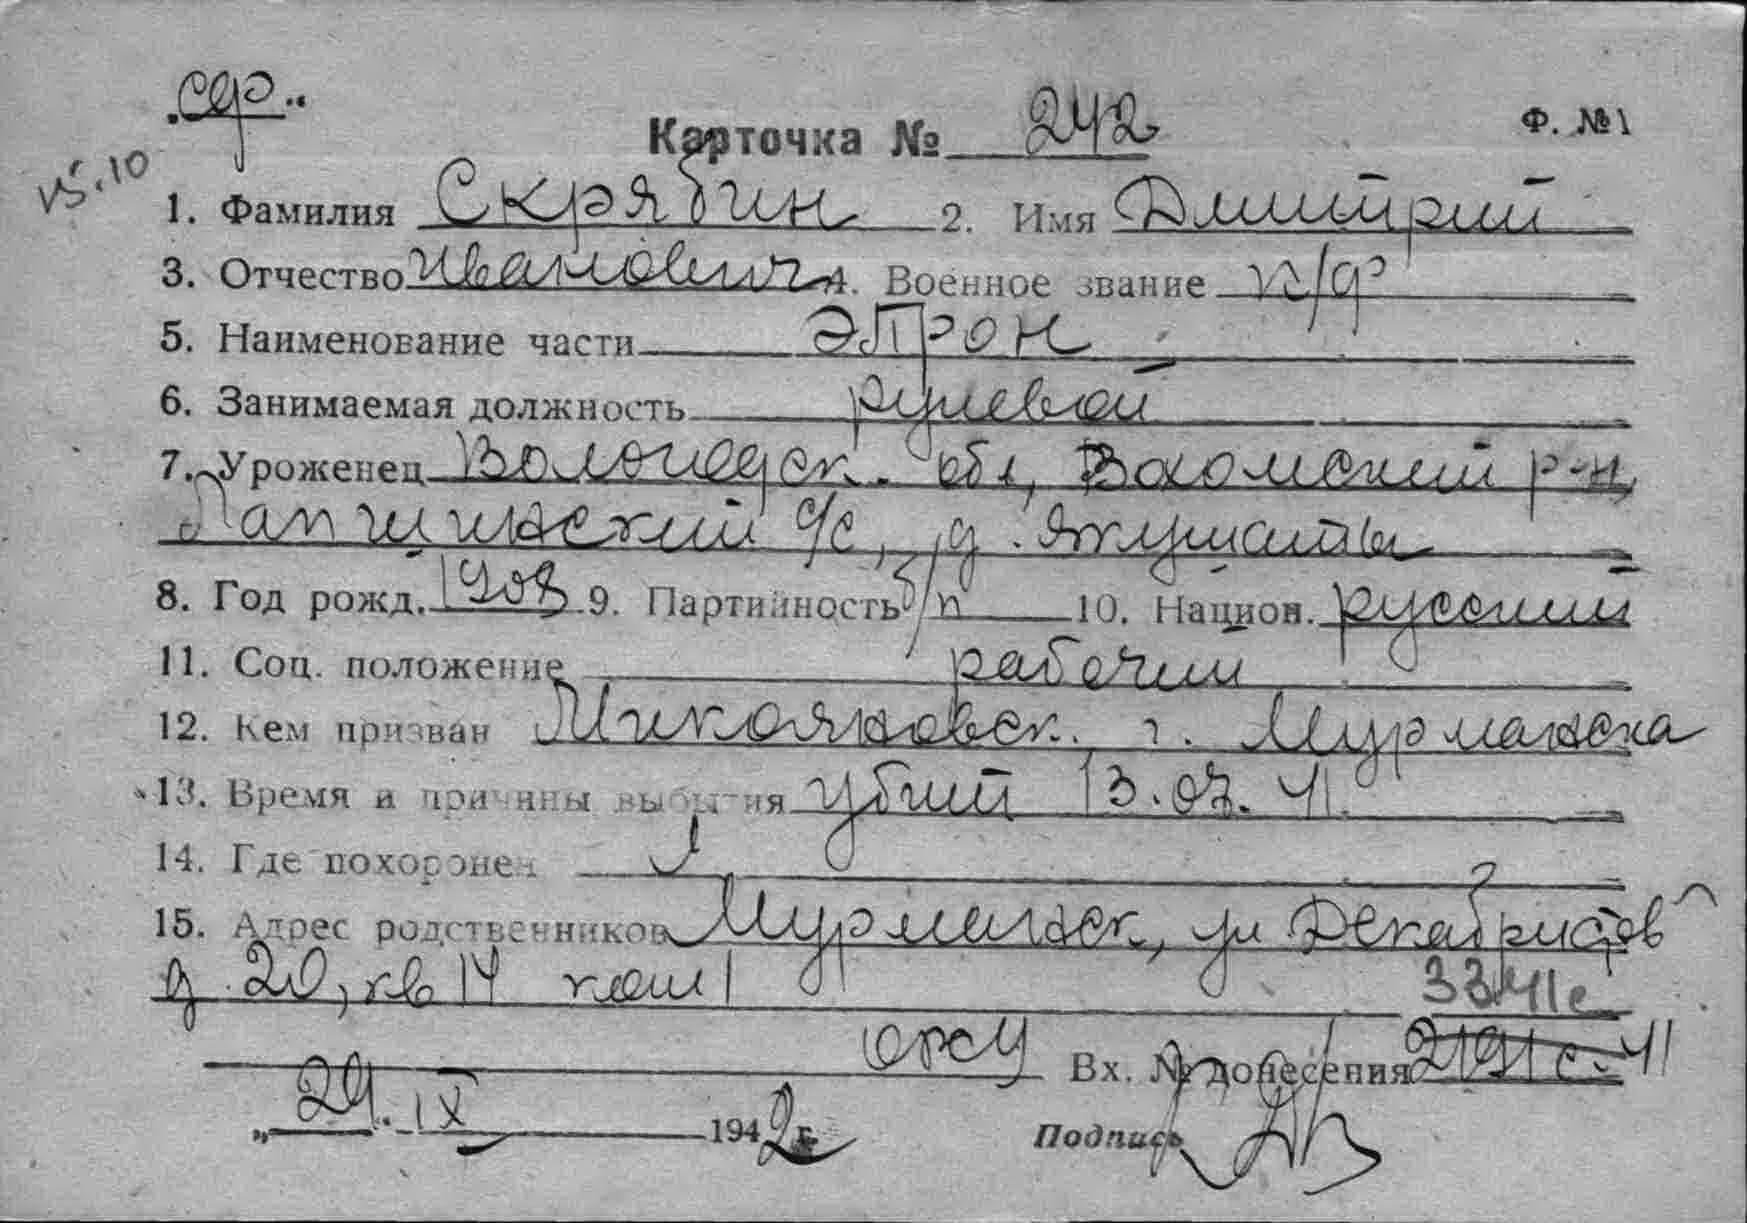 Карточка № 242 Ф. №1
v5.10
1. Фамилия Скрябин 2. Имя Дмитрий
3. Отчество Иванович 4. Военное звание к/ф
5. Наименование части ЭПРОН
6. Занимаемая должность рулевой
7. Уроженец Вологодск. обл, Вохомский р-н,
Лапшинский с/с, д. Якушата
8. Год рожд. 1908 9. Партийность б/п 10. Национ. русский
11. Соц. положение рабочий
12. Кем призван Микояновск. г. Мурманска
13. Время и причины выбытия убит 13.07.41.
14. Где похоронен
15. Адрес родственников Мурманск, ул Декабристов
д. 20, кв 14 ком 1
3341с
Вх. № донесения 2191 с-41
„29. IX 1942 г. Подпись